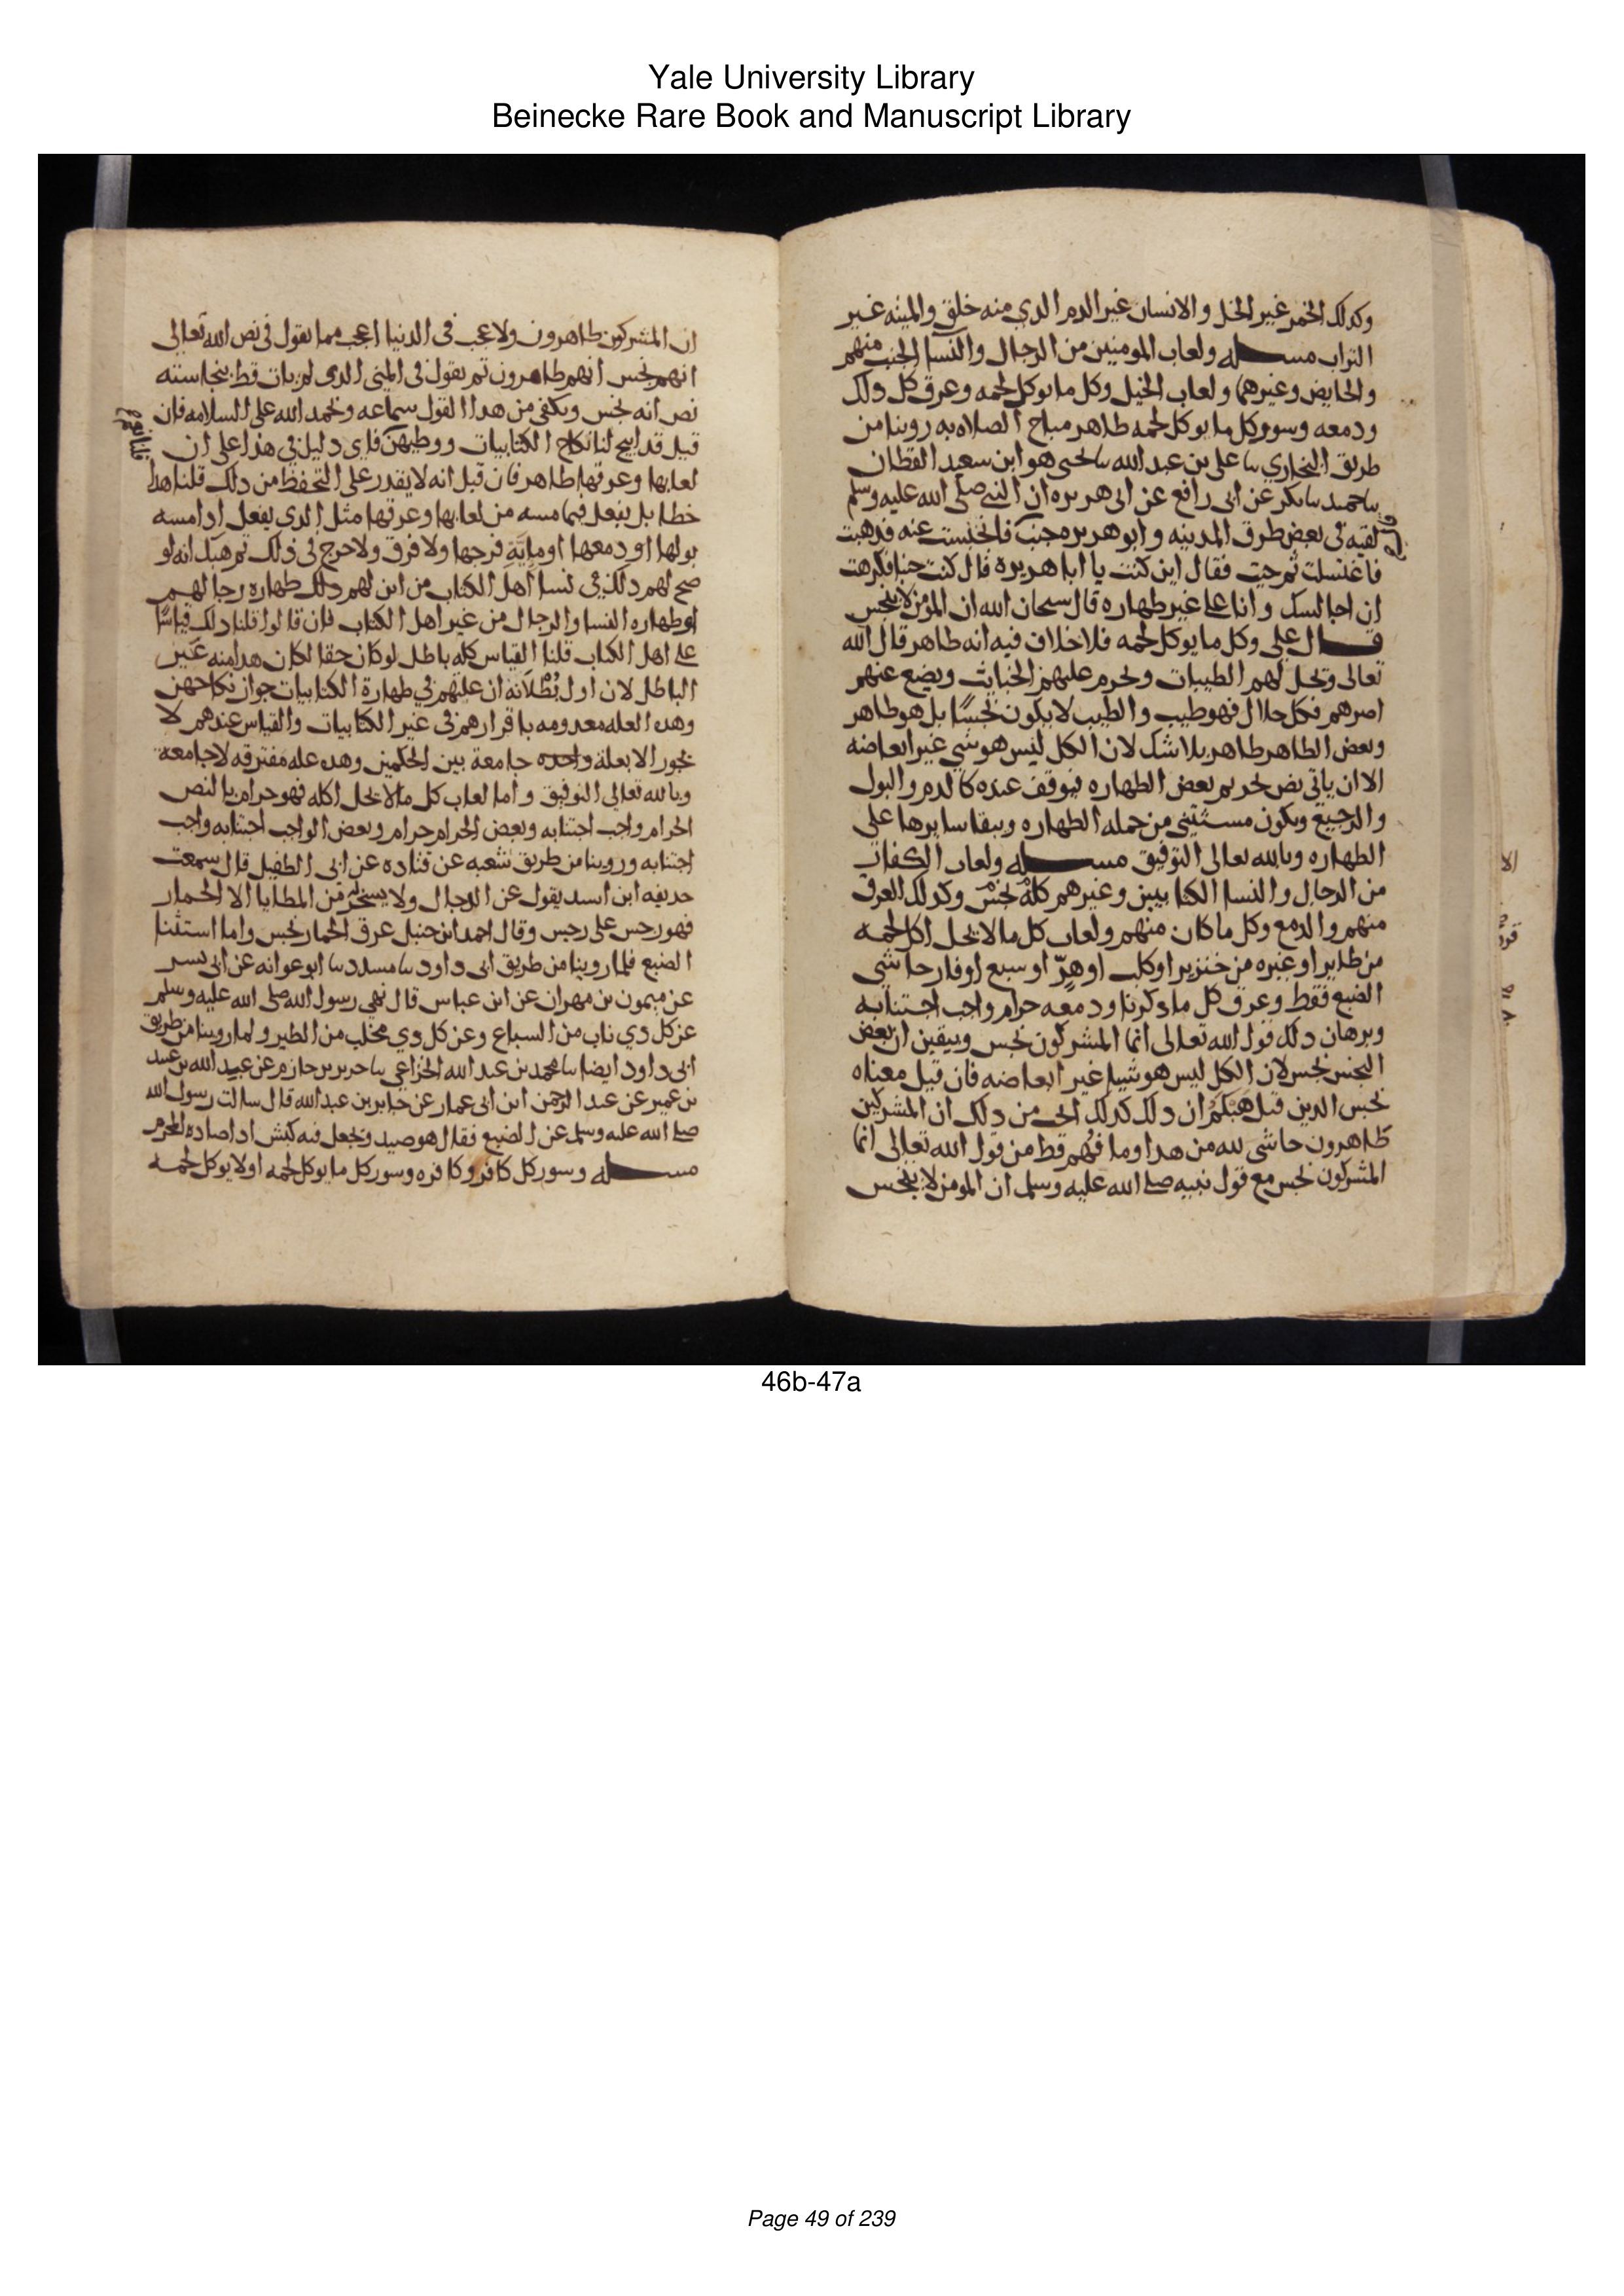 Yale University Library
Beinecke Rare Book and Manuscript Library
وكدلك الخمر غير الخل والانسان غير الدم الدي منه خلق والميته غير
التراب مسله ولعاب المومنين من الرجال والنسا الجنب منهم
والحايض وغيرهما ولعاب الخيل وكل ما يوكل لحمه وعرق كل دلك
ودمعه وسوركل ما يوكل لحمه طاهر مباح الصلاه به روينا من
طريق البخاري نا علي بن عبد الله نا يحيى هو ابن سعيد القطان
نا حميد نا بكر عن ابي رافع عن ابي هريره ان النبي صلى الله عليه وسلم
لقيه في بعض طرق المدينه وابو هريره مجنب فانخنست عنه فدهبت
فاغتسلت ثم جيت فقال اين كنت يا ابا هريره قال كنت جنبا فكرهت
ان اجالسك وانا على غير طهاره قال سبحان الله ان المومن لا ينجس
قال علي وكل ما يوكل لحمه فلا خلاف فيه انه طاهر قال الله
تعالى ويحل لهم الطيبات ويحرم عليهم الخبايث ويضع عنهم
اصرهم فكل حلال فهو طيب والطيب لا يكون نجسًا بل هو طاهر
وبعض الطاهر طاهر بلا شك لان الكل ليس هو شي غير ابعاضه
الا ان ياتي نص بتحريم بعض الطهاره فيوقف عنده كالدم والبول
والرجيع ويكون مستثنى من جمله الطهاره ويبقا سايرها على
الطهاره وبالله تعالى التوفيق مسله ولعاب الكفار
من الرجال والنسا الكتابيين وغيرهم كلهُ نجسٌ وكدلك العرق
منهم والدمع وكل ما كان منهم ولعاب كل ما لا يحل اكل لحمه
من طاير او غيره من خنزير او كلب او هرّ او سبع او فار حاشى
الضبع فقط وعرق كل ما دكرنا ودمعه حرام واجب اجتنابه
وبرهان دلك قول الله تعالى انما المشركون نجس وبيقين ان بعض
النجس نجس لان الكل ليس هو شيا غير ابعاضه فان قيل معناه
نجس الدين قيل هبكم ان دلك كدلك ايجب من دلك ان المشركين
طاهرون حاشى لله من هدا وما فُهم قط من قول الله تعالى انما
المشركون نجس مع قول نبيه صلى الله عليه وسلم ان المومن لا ينجس
ان المشركين طاهرون ولا عجب في الدنيا اعجب مما يقول في نص الله تعالى
انهم نجس انهم طاهرون ثم يقول في المني الدي لم يات قط بنجاسته
نص انه نجس ويكفي من هدا القول سماعه ونحمد الله على السلامه فان
قيل قد ابيح لنا نكاح الكتابيات ووطيهن فاي دليل في هذا على ان
لعابها وعرقها طاهر فان قيل انه لا يقدر على التحفظ من دلك قلنا هدا
خطا بل يفعل فيما مسه من لعابها وعرقها مثل الدي يفعل ادا مسه
بولها او دمعها او مايّة فرجها ولا فرق ولا حرج في ذلك ثم هبك انه لو
صح لهم دلك في نسا اهل الكتاب من اين لهم دلك طهاره رجالهم
او طهاره النسا والرجال من غير اهل الكتاب فان قالوا قلنا دلك قياسًا
على اهل الكتاب قلنا القياس كله باطل لو كان حقا لكان هدا منه عين
الباطل لان اول بُطْلانه ان علتهم في طهارة الكتابيات جواز نكاحهن
وهده العله معدومه باقرارهم في غير الكتابيات والقياس عندهم لا
يجوز الا بعلة واحده جامعة بين الحكمين وهده عله مفترقه لا جامعة
وبالله تعالى التوفيق واما لعاب كل ما لا يحل اكله فهو حرام بالنص
الحرام واجب اجتنابه وبعض الحرام حرام وبعض الواجب اجتنابه واجب
اجتنابه وروينا من طريق شعبه عن قتاده عن ابي الطفيل قال سمعت
حديفه ابن اسيد يقول عن الدجال ولا يسخر له من المطايا الا الحمار
فهو رجس على رجس وقال احمد ابن حنبل عرق الحمار نجس واما استثنا
الضبع فلما روينا من طريق ابي داود نا مسدد نا ابو عوانه عن ابي بسر
عن ميمون بن مهران عن ابن عباس قال نهى رسول الله صلى الله عليه وسلم
عن كل دي ناب من السباع وعن كل دي مخلب من الطير ولما روينا من طريق
ابي داود ايضا نا محمد بن عبد الله الخزاعي نا جرير بن حازم عن عبيد الله بن عبيد
بن عمير عن عبد الرحمن ابن ابي عمار عن جابر بن عبد الله قال سالت رسول الله
صلى الله عليه وسلم عن الضبع فقال هو صيد ويجعل فيه كبش ادا صاده المحرم
مسله وسور كل كافر وكافره وسور كل ما يوكل لحمه او لا يوكل لحمه
46b-47a
Page 49 of 239